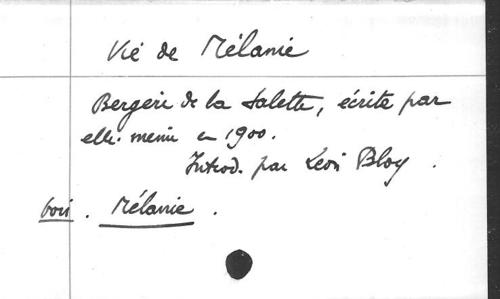 Vie de Mélanie
Bergère de la Salette, écrite par
elle-même en 1900.
Introd. par Léon Bloy.
voir. Mélanie.